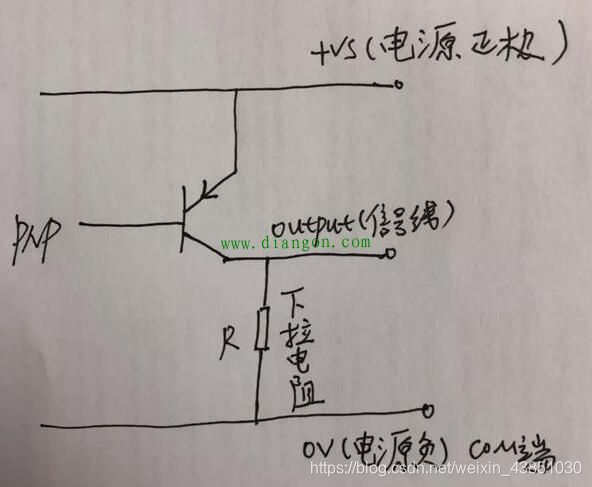 +VS(电源正极)
PNP
output(信号线)
www.diangon.com
R
下拉电阻
0V(电源负) COM端
https://blog.csdn.net/weixin_43851030